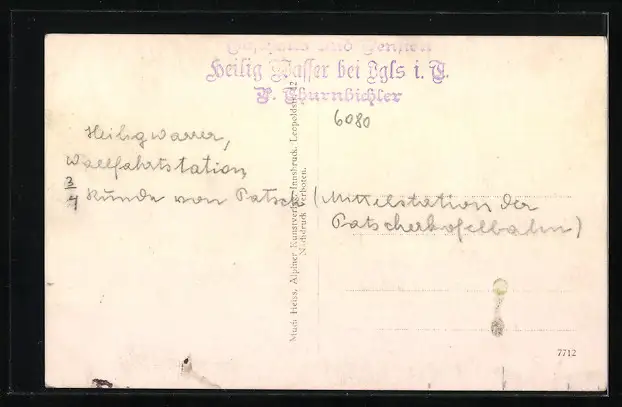 Gasthaus und Pension
Heilig Wasser bei Igls i. T.
P. Thurnbichler
6080
Heiligwasser,
Wallfahrtstation
3/4 Stunde von Patsch (Mittelstation der
Patscherkofelbahn)
Much Heiss, Alpiner Kunstverlag, Innsbruck, Leopoldstr. 2
Nachdruck Verboten.
7712